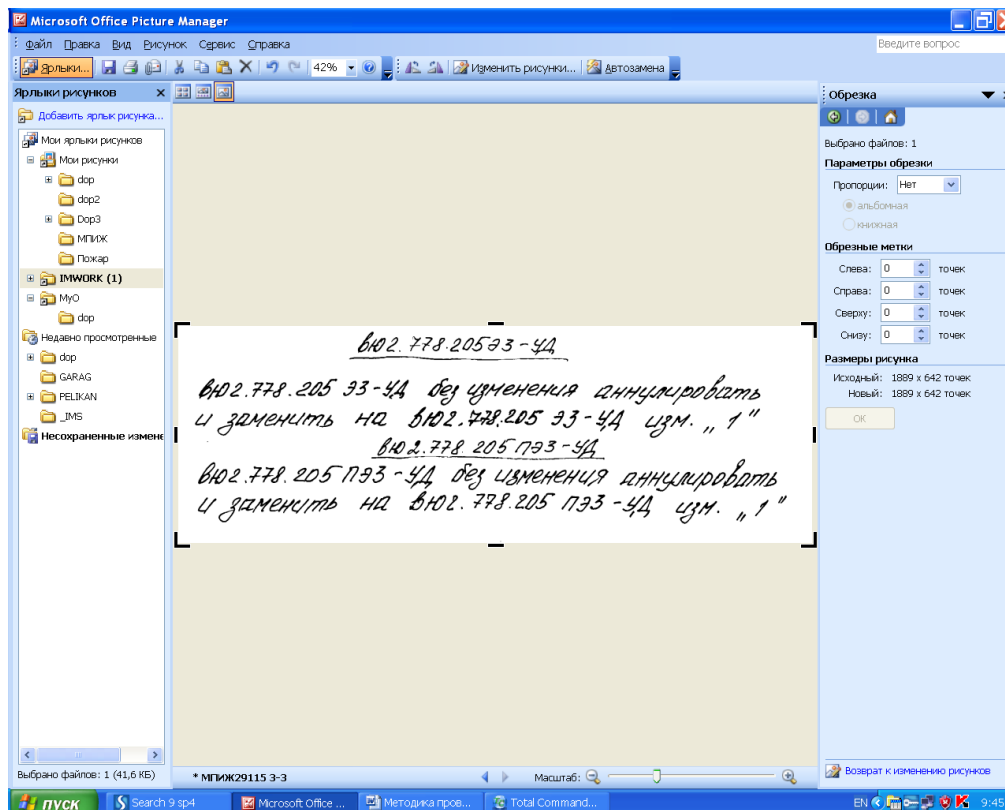 Microsoft Office Picture Manager
Файл Правка Вид Рисунок Сервис Справка
Введите вопрос
Ярлыки... 42% Изменить рисунки... Автозамена
Ярлыки рисунков
Добавить ярлык рисунка...
Мои ярлыки рисунков
Мои рисунки
dop
dop2
Dop3
МПИЖ
Пожар
IMWORK (1)
MyO
dop
Недавно просмотренные
dop
GARAG
PELIKAN
_IMS
Несохраненные измене
вю2.778.205ЭЗ-УД
вю2.778.205 ЭЗ-УД без изменения аннулировать
и заменить на вю2.778.205 ЭЗ-УД изм. „1"
вю2.778.205 ПЭЗ-УД
вю2.778.205 ПЭЗ-УД без изменения аннулировать
и заменить на вю2.778.205 ПЭЗ-УД изм. „1"
Обрезка
Выбрано файлов: 1
Параметры обрезки
Пропорции: Нет
альбомная
книжная
Обрезные метки
Слева: 0 точек
Справа: 0 точек
Сверху: 0 точек
Снизу: 0 точек
Размеры рисунка
Исходный: 1889 x 642 точек
Новый: 1889 x 642 точек
ОК
Возврат к изменению рисунков
Выбрано файлов: 1 (41,6 КБ)
* МПИЖ29115 3-3
Масштаб:
пуск
Search 9 sp4
Microsoft Office ...
Методика пров...
Total Command...
EN
9:45